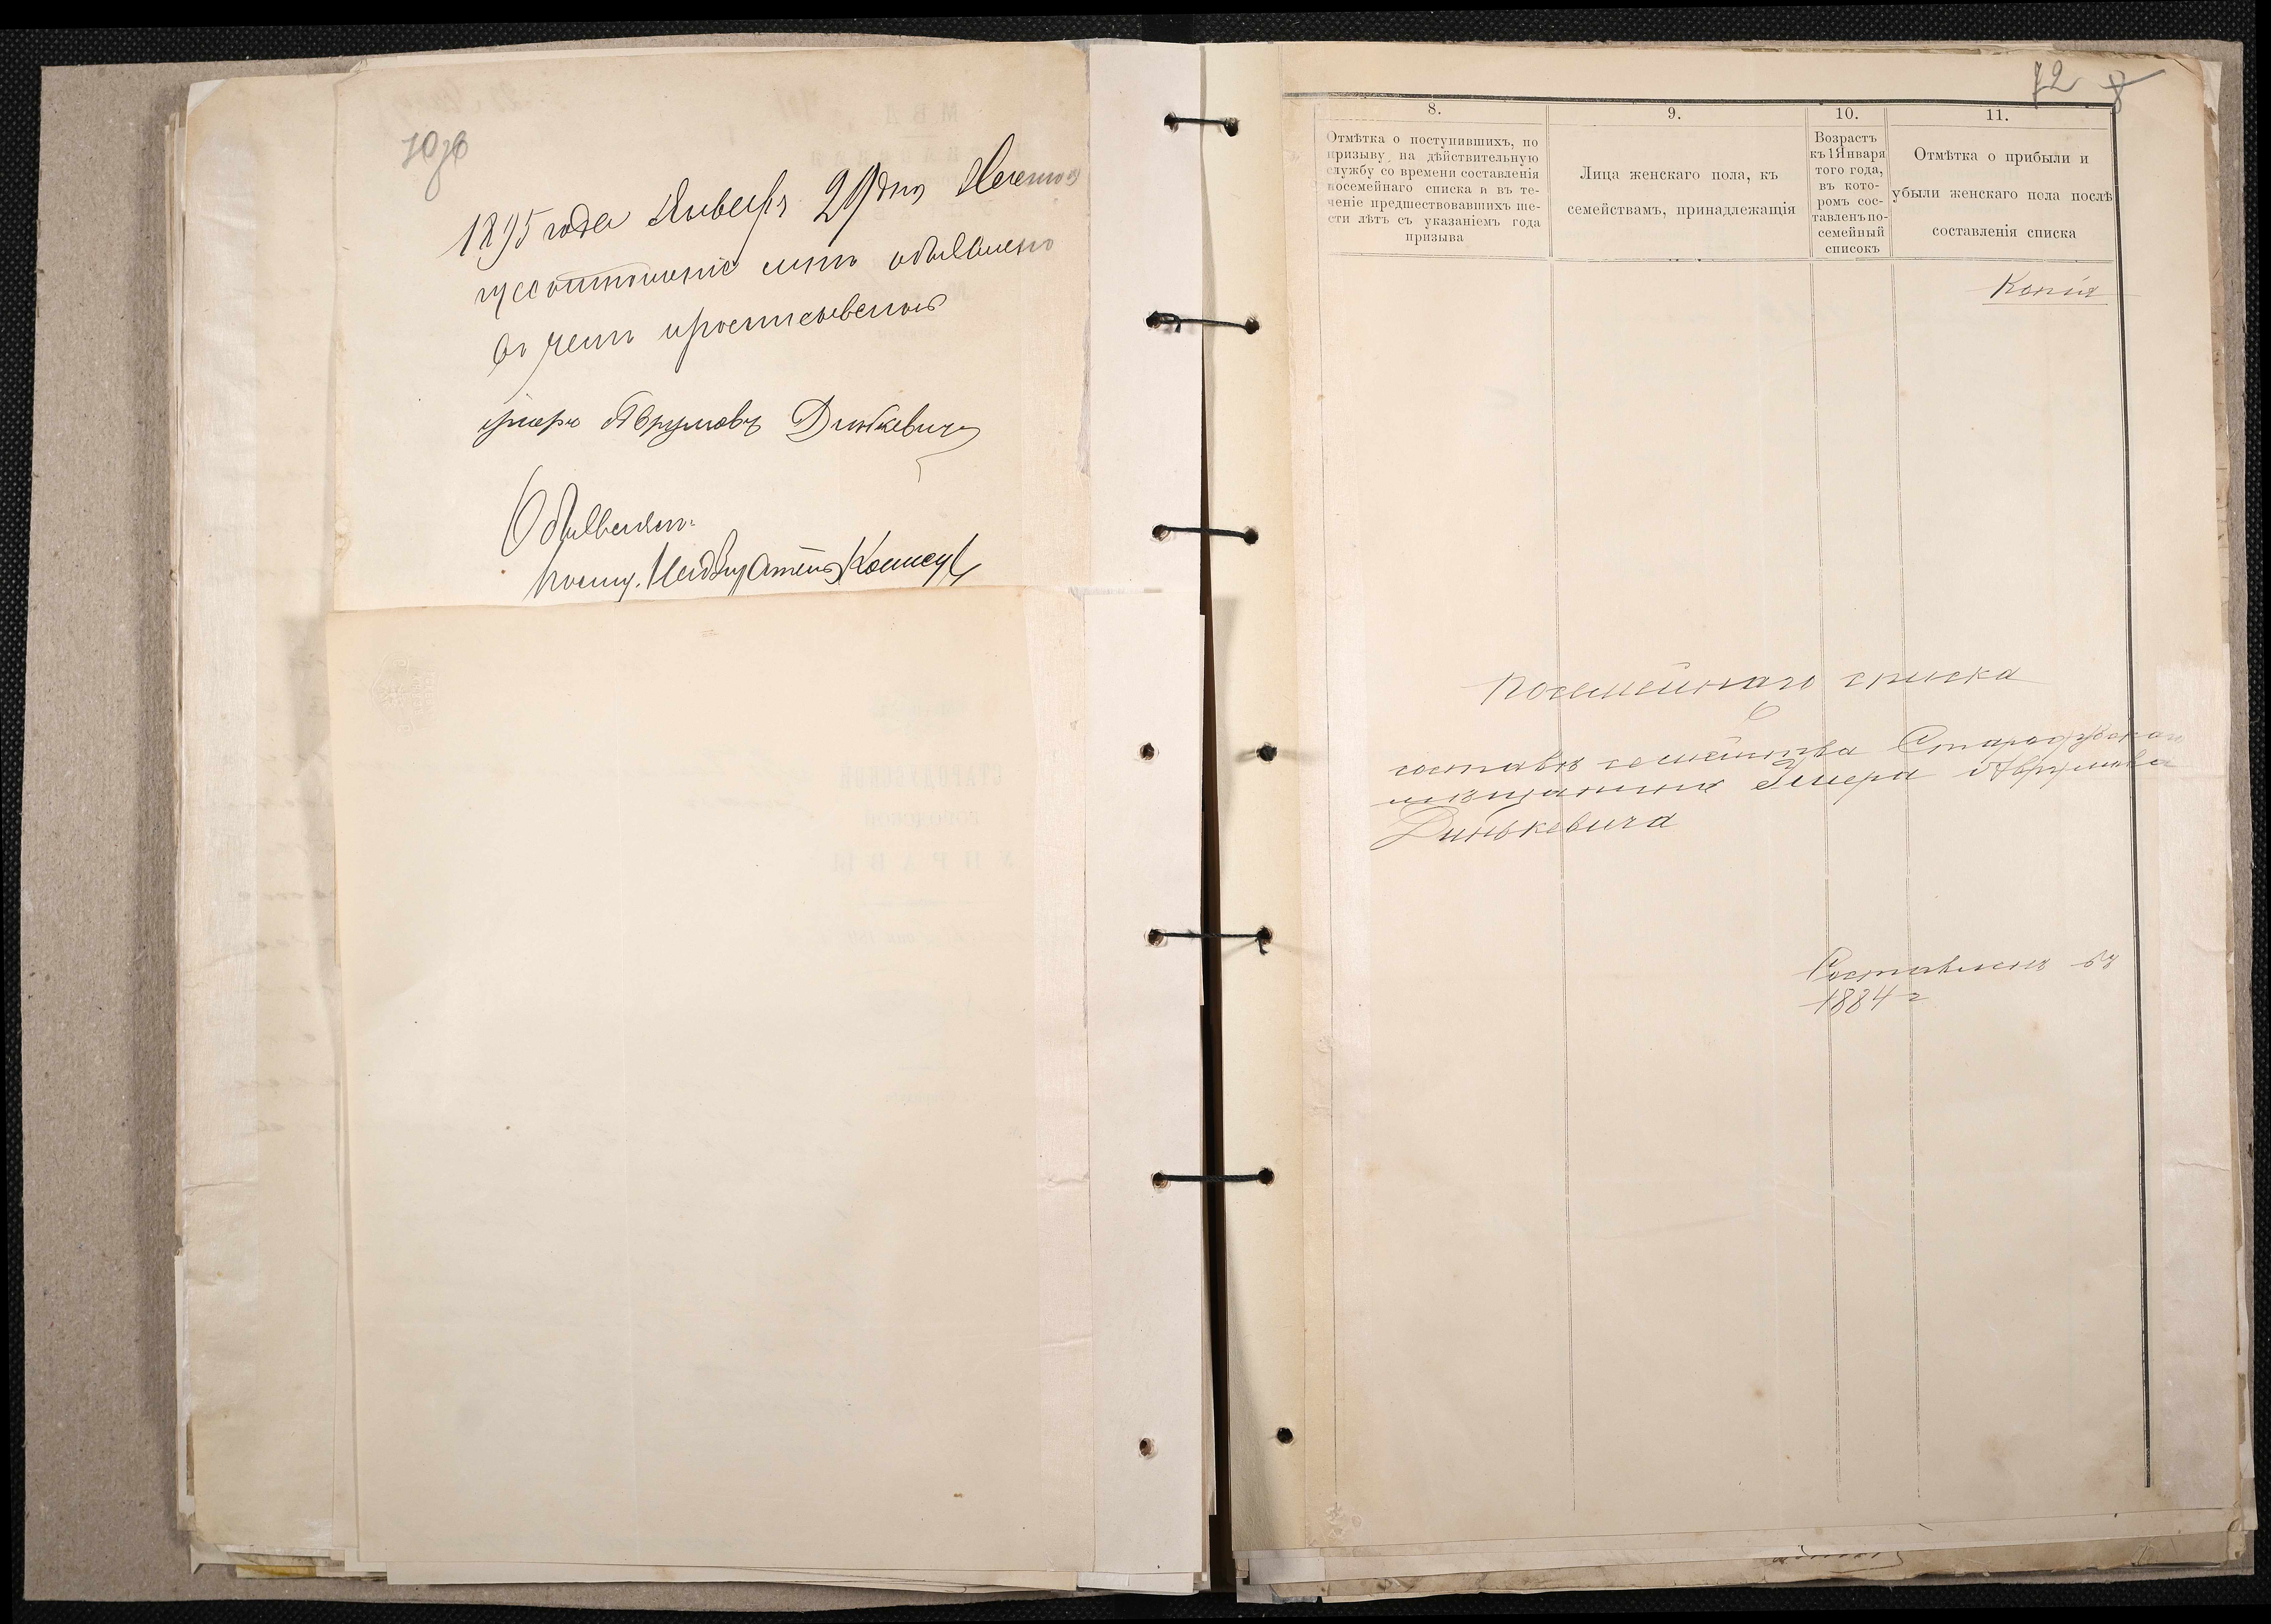 70об
1895 года Января 29 дня Настоя
щее отношеніе мнѣ объявлено
въ чемъ и росписываюсь
Умеръ Аврумовъ Динкевичъ
Объявилъ
72 8
8.
Отмѣтка о поступившихъ, по
призыву, на дѣйствительную
службу со времени составленія
посемейнаго списка и въ те-
ченіе предшествовавшихъ ше-
сти лѣтъ съ указаніемъ года
призыва
9.
Лица женскаго пола, къ
семействамъ, принадлежащія
10.
Возрастъ
къ 1 Января
того года,
въ кото-
ромъ сос-
тавленъ по-
семейный
списокъ
11.
Отмѣтка о прибыли и
убыли женскаго пола послѣ
составленія списка
Копія
Посемейнаго списка
О
составѣ семейства Стародубскаго
мѣщанина Умера Аврумова
Динькевича
Составленъ въ
1884 г
М В Д
СТАРОДУБСКОЙ
ГОРОДСКОЙ
УПРАВЫ